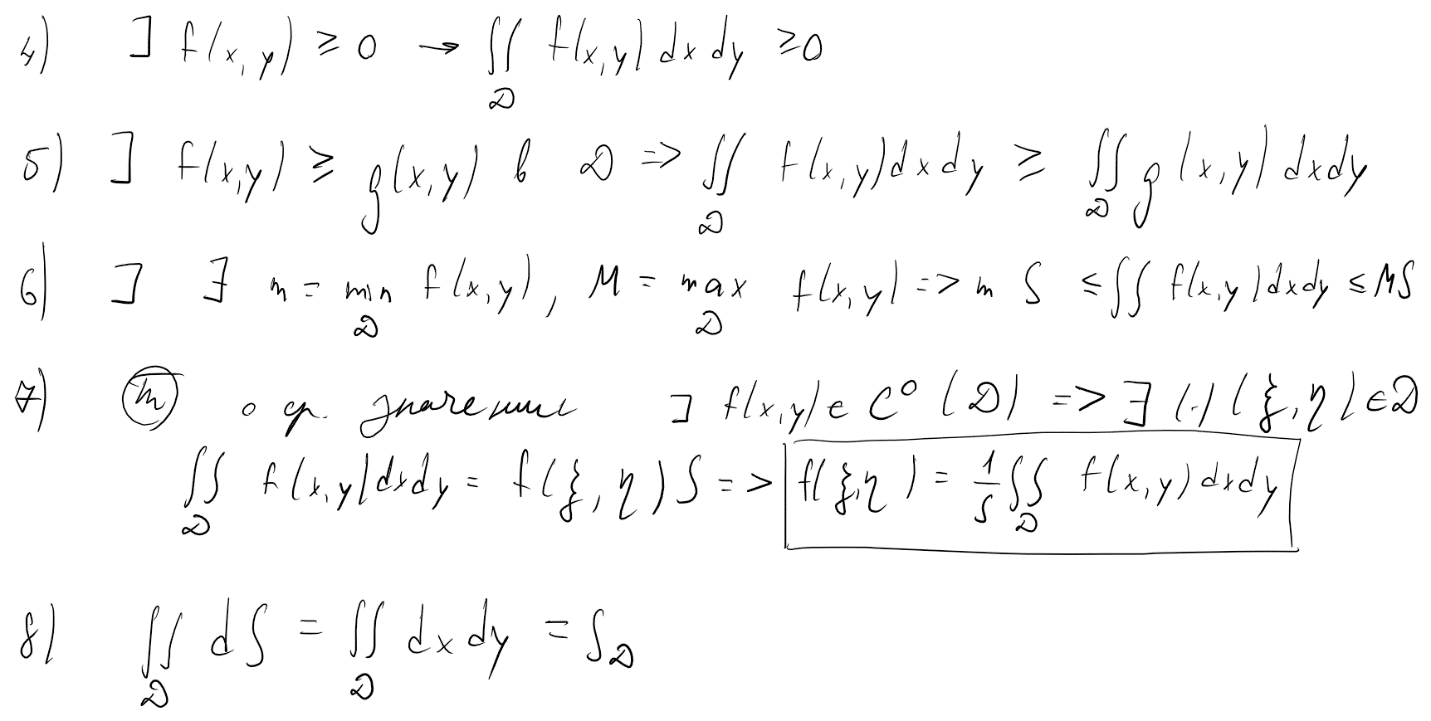 4) ] f(x,y) ≥ 0 → ∬_D f(x,y) dx dy ≥ 0
5) ] f(x,y) ≥ g(x,y) в D => ∬_D f(x,y) dx dy ≥ ∬_D g(x,y) dx dy
6) ] ∃ m = min_D f(x,y), M = max_D f(x,y) => m S ≤ ∬ f(x,y) dx dy ≤ MS
7) (т) о ср. значении ] f(x,y) ∈ C⁰(D) => ∃ (·) (ξ,η) ∈ D
∬_D f(x,y) dx dy = f(ξ,η) S => f(ξ,η) = 1/S ∬_D f(x,y) dx dy
8) ∬_D dS = ∬_D dx dy = S_D